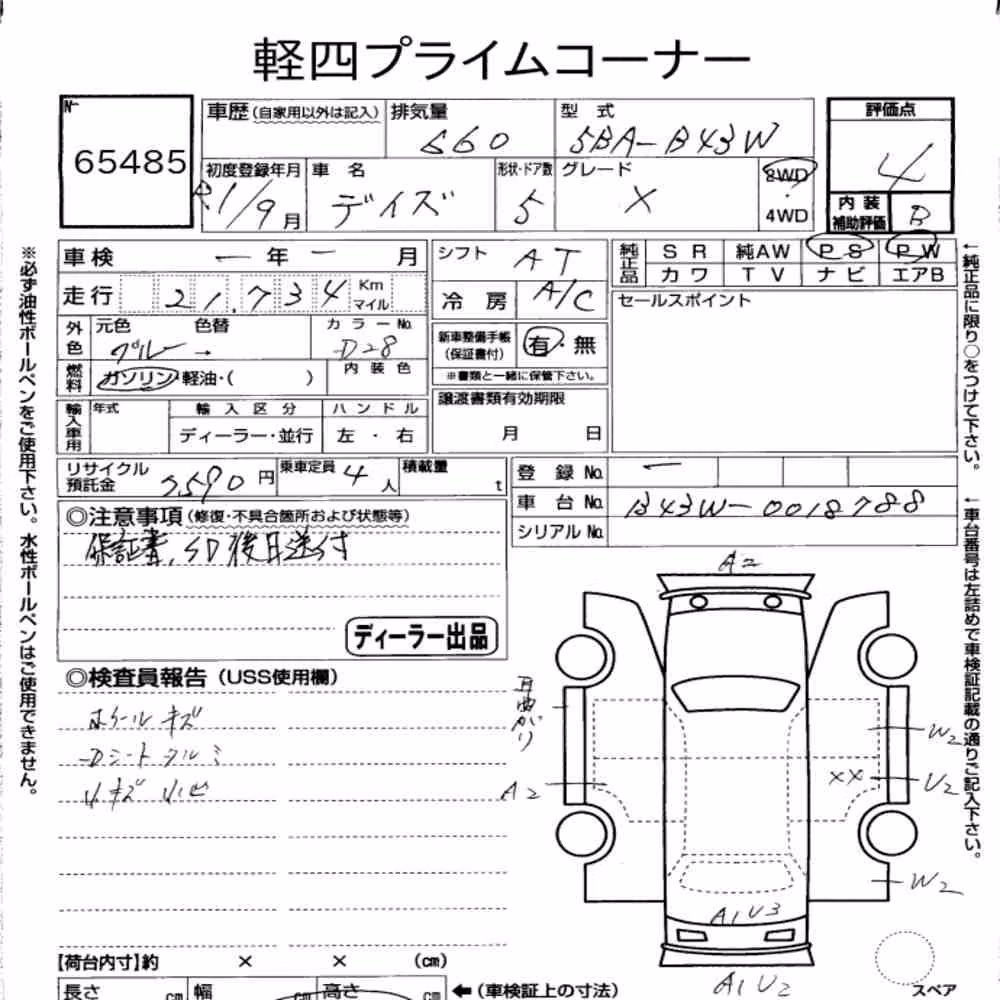 軽四プライムコーナー
№
65485
車歴(自家用以外は記入) 排気量 型式 評価点
660 5BA-B43W 4
初度登録年月 車名 形状・ドア数 グレード 2WD
R.1/9月 デイズ 5 X ・
4WD
内装補助評価 B
車検 ー年ー月
走行 21,734 Km マイル
シフト AT
冷房 A/C
純正品 SR 純AW PS PW
カワ TV ナビ エアB
セールスポイント
外色 元色 色替 カラーNo.
ブルー → D28
新車整備手帳(保証書付) 有・無
※書類と一緒に保管下さい。
燃料 ガソリン・軽油・( ) 内装色
譲渡書類有効期限
月 日
輸入車用 年式 輸入区分 ハンドル
ディーラー・並行 左・右
リサイクル預託金 7590円 乗車定員 4人 積載量 t
登録No. ー
車台No. B43W-0018788
シリアルNo.
◎注意事項(修復・不具合箇所および状態等)
保証書、SD後日送付
ディーラー出品
◎検査員報告(USS使用欄)
ホイールキズ
Dシートタルミ
A2
耳曲がり
W2
XX U2
A2
W2
A1U3
A1U2
スペア
【荷台内寸】約 × × (cm)
長さ cm 幅 cm 高さ cm ←(車検証上の寸法)
※必ず油性ボールペンをご使用下さい。水性ボールペンはご使用できません。
←純正品に限り○をつけて下さい。
←車台番号は左詰めで車検証記載の通りご記入下さい。